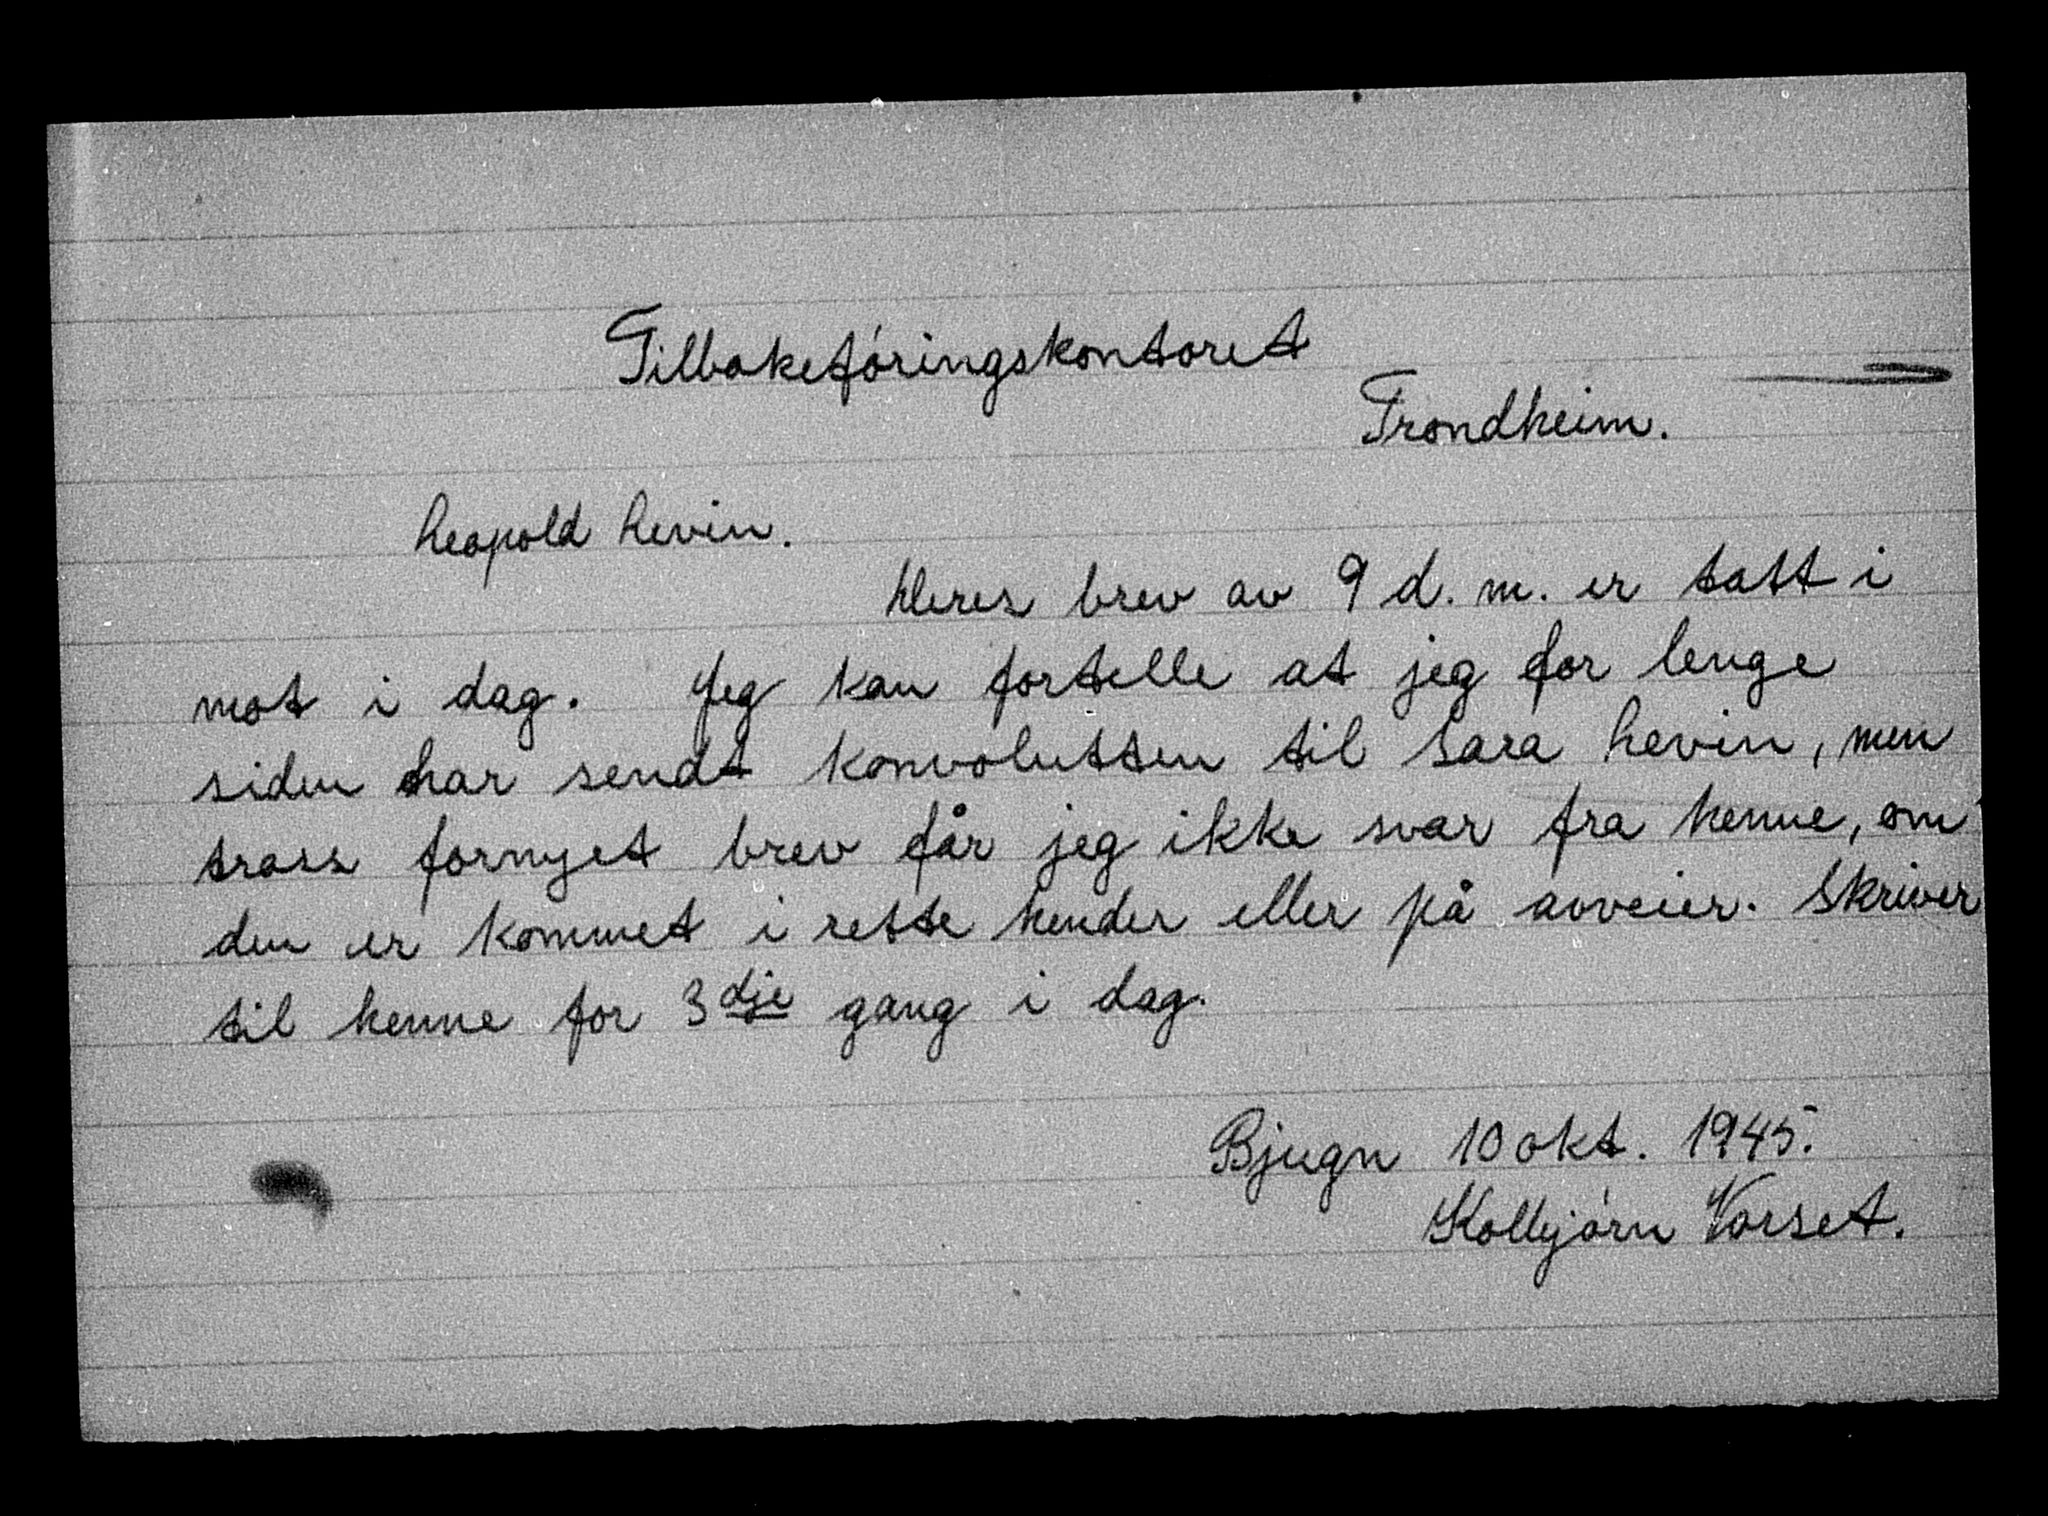 Tilbakeføringskontoret
Trondheim.
Leopold Levin.
Deres brev av 9 d. m. er tatt i
mot i dag. Jeg kan fortelle at jeg for lenge
siden har sendt konvolutten til Sara Levin, men
tross fornyet brev får jeg ikke svar fra henne, om
den er kommet i rette hender eller på avveier. Skriver
til henne for 3dje gang i dag.
Bjugn 10 okt. 1945.
Kolbjørn Varset.